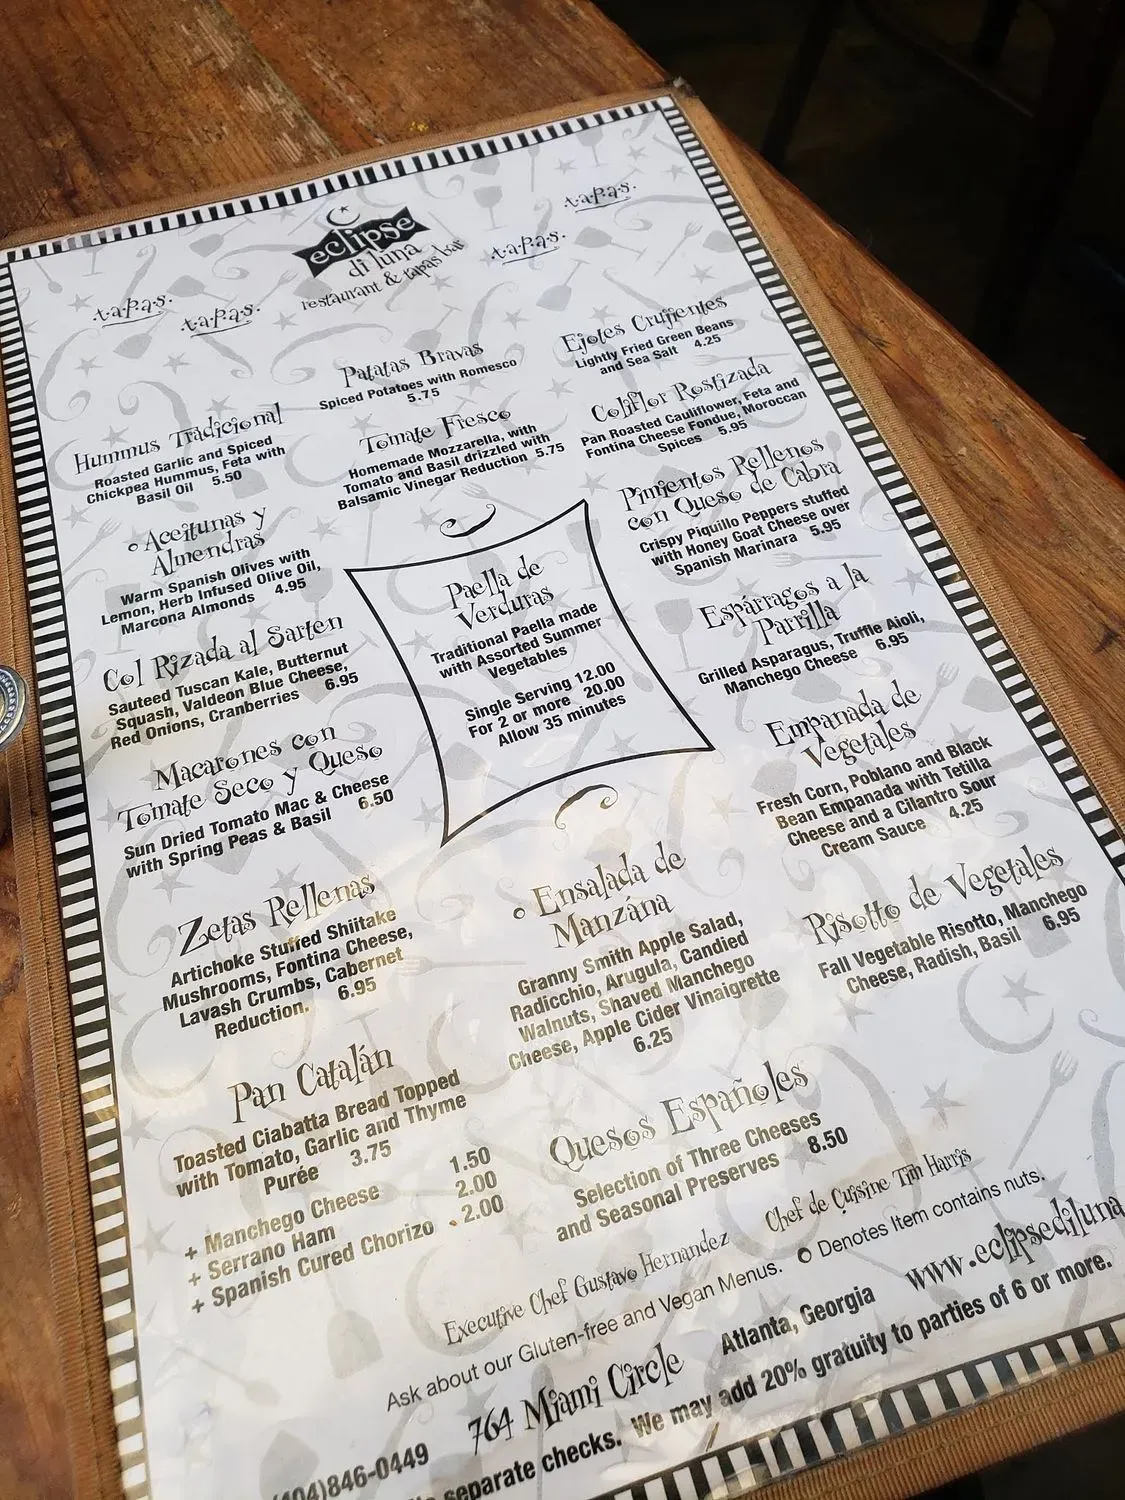 eclipse
di luna
restaurant & tapas bar
t.a.p.a.s.
t.a.p.a.s.
t.a.p.a.s.
t.a.p.a.s.
Hummus Tradicional
Roasted Garlic and Spiced
Chickpea Hummus, Feta with
Basil Oil 5.50
Aceitunas y
Almendras
Warm Spanish Olives with
Lemon, Herb Infused Olive Oil,
Marcona Almonds 4.95
Col Rizada al Sarten
Sauteed Tuscan Kale, Butternut
Squash, Valdeon Blue Cheese,
Red Onions, Cranberries 6.95
Macarones con
Tomate Seco y Queso
Sun Dried Tomato Mac & Cheese
with Spring Peas & Basil 6.50
Zetas Rellenas
Artichoke Stuffed Shiitake
Mushrooms, Fontina Cheese,
Lavash Crumbs, Cabernet
Reduction. 6.95
Pan Catalán
Toasted Ciabatta Bread Topped
with Tomato, Garlic and Thyme
Purée 3.75
+ Manchego Cheese 1.50
+ Serrano Ham 2.00
+ Spanish Cured Chorizo 2.00
Patatas Bravas
Spiced Potatoes with Romesco
5.75
Tomate Fresco
Homemade Mozzarella, with
Tomato and Basil drizzled with
Balsamic Vinegar Reduction 5.75
Paella de
Verduras
Traditional Paella made
with Assorted Summer
Vegetables
Single Serving 12.00
For 2 or more 20.00
Allow 35 minutes
Ensalada de
Manzána
Granny Smith Apple Salad,
Radicchio, Arugula, Candied
Walnuts, Shaved Manchego
Cheese, Apple Cider Vinaigrette
6.25
Quesos Españoles
Selection of Three Cheeses
and Seasonal Preserves 8.50
Ejotes Crujientes
Lightly Fried Green Beans
and Sea Salt 4.25
Coliflor Rostizada
Pan Roasted Cauliflower, Feta and
Fontina Cheese Fondue, Moroccan
Spices 5.95
Pimientos Rellenos
con Queso de Cabra
Crispy Piquillo Peppers stuffed
with Honey Goat Cheese over
Spanish Marinara 5.95
Espárragos a la
Parrilla
Grilled Asparagus, Truffle Aioli,
Manchego Cheese 6.95
Empanada de
Vegetales
Fresh Corn, Poblano and Black
Bean Empanada with Tetilla
Cheese and a Cilantro Sour
Cream Sauce 4.25
Risotto de Vegetales
Fall Vegetable Risotto, Manchego
Cheese, Radish, Basil 6.95
Executive Chef Gustavo Hernandez Chef de Cuisine Tim Harris
Ask about our Gluten-free and Vegan Menus. Denotes Item contains nuts.
(404)846-0449 764 Miami Circle Atlanta, Georgia www.eclipsediluna
separate checks. We may add 20% gratuity to parties of 6 or more.